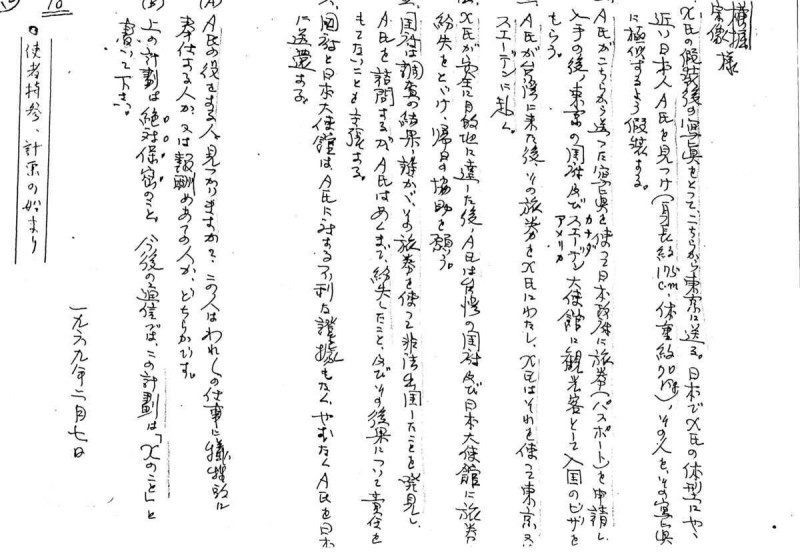 横掘様
宗像様
X氏の假装後の写真をとってこちらから東京に送る。日本でX氏の体型にやゝ
近い日本人A氏を見つけ(身長約175cm、体重約70kg)、その人を、その写真
に極似するよう假装する。
A氏がこちらから送った写真を使って日本政府に旅券(パスポート)を申請し
入手の後、東京の国府及びスエーデン カナダ アメリカ 大使館に観光客として入国のビザを
もらう。
A氏が台湾に来た後、その旅券をX氏にわたし、X氏はそれを使って東京又
スエーデンに赴く。
X氏が安全に目的地に達した後、A氏は台湾の国府及び日本大使館に旅券
紛失をとどけ、帰日の協助を願う。
国府は調査の結果、誰かがその旅券を使って非法出国したことを発見し
A氏を詰問するが、A氏はあくまで紛失したこと、及びその後果について責任を
もてないことを主張する。
国府と日本大使館は、A氏に対する不利な證據もなく、やむなくA氏を日本
に送還する。
(A) A氏の役をする人、見つかりますか?この人はわれ〱の仕事に犠牲的に
奉仕する人か、又は報酬めあての人か、どちらかです。
(B) 上の計劃は絶対保密のこと、今後の通信では、この計劃は「Xのこと」と
書いて下さい。
一九六九年二月七日
10
・使者持参、計画の始まり